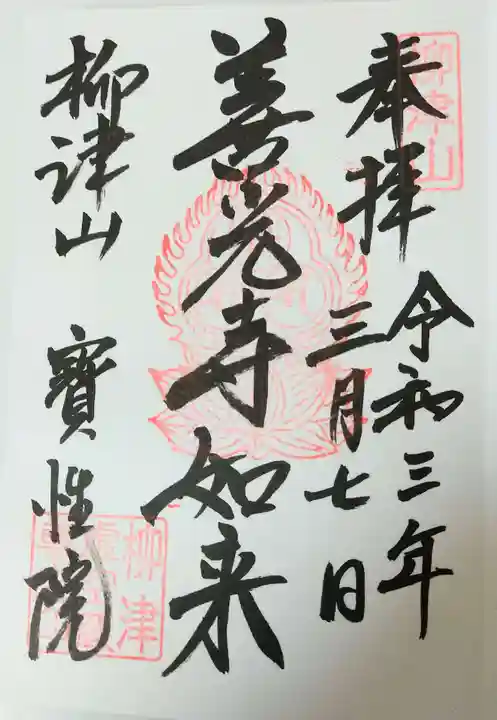 柳津山
奉拝
令和三年
三月七日
善光寺如来
柳津山 寶性院
柳津